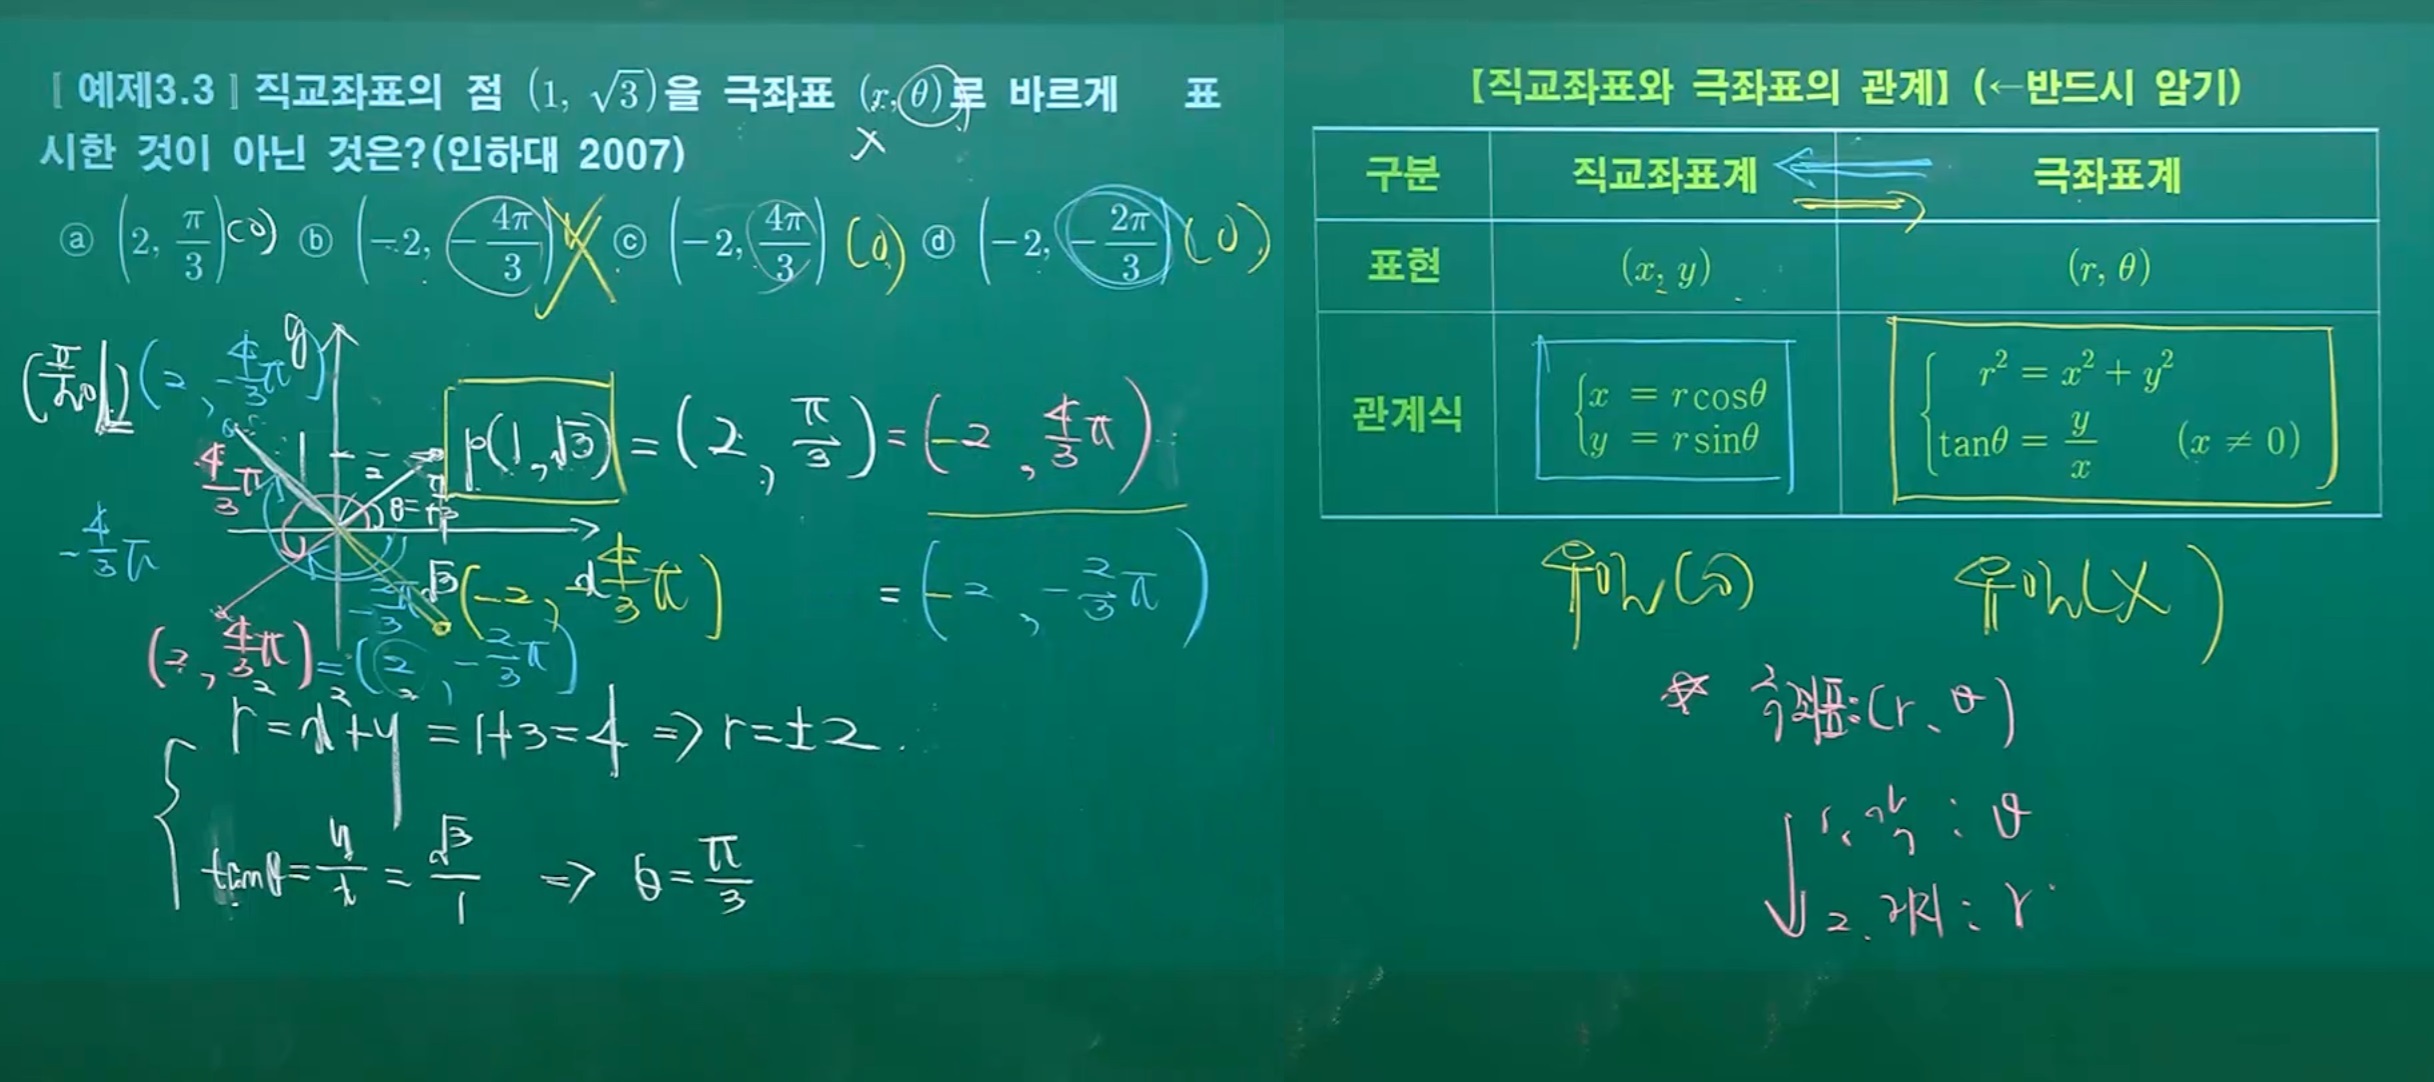 [예제3.3] 직교좌표의 점 (1, √3)을 극좌표 (r, θ)로 바르게 표
시한 것이 아닌 것은?(인하대 2007)
ⓐ (2, π/3) (O) ⓑ (-2, -4π/3) ⓒ (-2, 4π/3) (O) ⓓ (-2, -2π/3) (O)
y
(2, -4/3π)
P(1, √3) = (2, π/3) = (-2, 4/3π)
4/3π
θ=π/3
-4/3π
-2/3π
√3
(-2, -4/3π)
= (-2, -2/3π)
(2, 4/3π) = (2, -2/3π)
r² = x²+y² = 1+3 = 4 => r = ±2
tanθ = y/x = √3/1 => θ = π/3
【직교좌표와 극좌표의 관계】 (←반드시 암기)
구분 직교좌표계 극좌표계
표현 (x, y) (r, θ)
관계식
x = r cosθ
y = r sinθ
r² = x² + y²
tanθ = y/x (x ≠ 0)
유일(O) 유일(X)
극좌표:(r, θ)
1. 각 : θ
2. 거리 : r